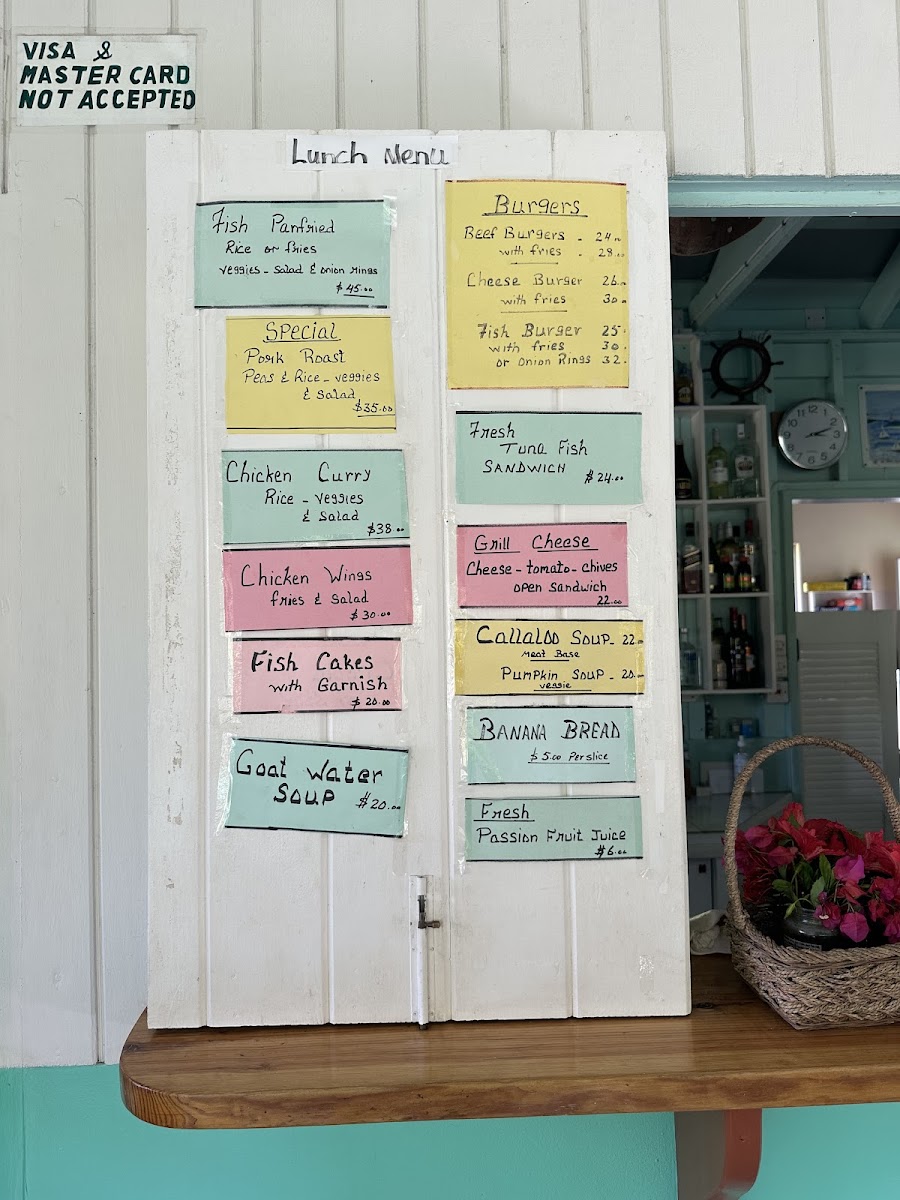 VISA &
MASTER CARD
NOT ACCEPTED
Lunch Menu
Fish Panfried
Rice or fries
veggies - Salad & onion rings
$45.00
Special
Pork Roast
Peas & Rice - veggies
& Salad
$35.00
Chicken Curry
Rice - veggies
& Salad
$38.00
Chicken Wings
fries & Salad
$30.00
Fish Cakes
with Garnish
$20.00
Goat Water
Soup $20.00
Burgers
Beef Burgers - 24.00
with fries - 28.00
Cheese Burger 26.00
with fries 30.00
Fish Burger 25.
with fries 30.
or Onion Rings 32.
Fresh
Tuna Fish
SANDWICH
$24.00
Grill Cheese
Cheese - tomato - chives
open Sandwich
22.00
Callaloo Soup - 22.00
Meat Base
Pumpkin Soup - 20.00
veggie
BANANA BREAD
$5.00 Per slice
Fresh
Passion Fruit Juice
$6.00